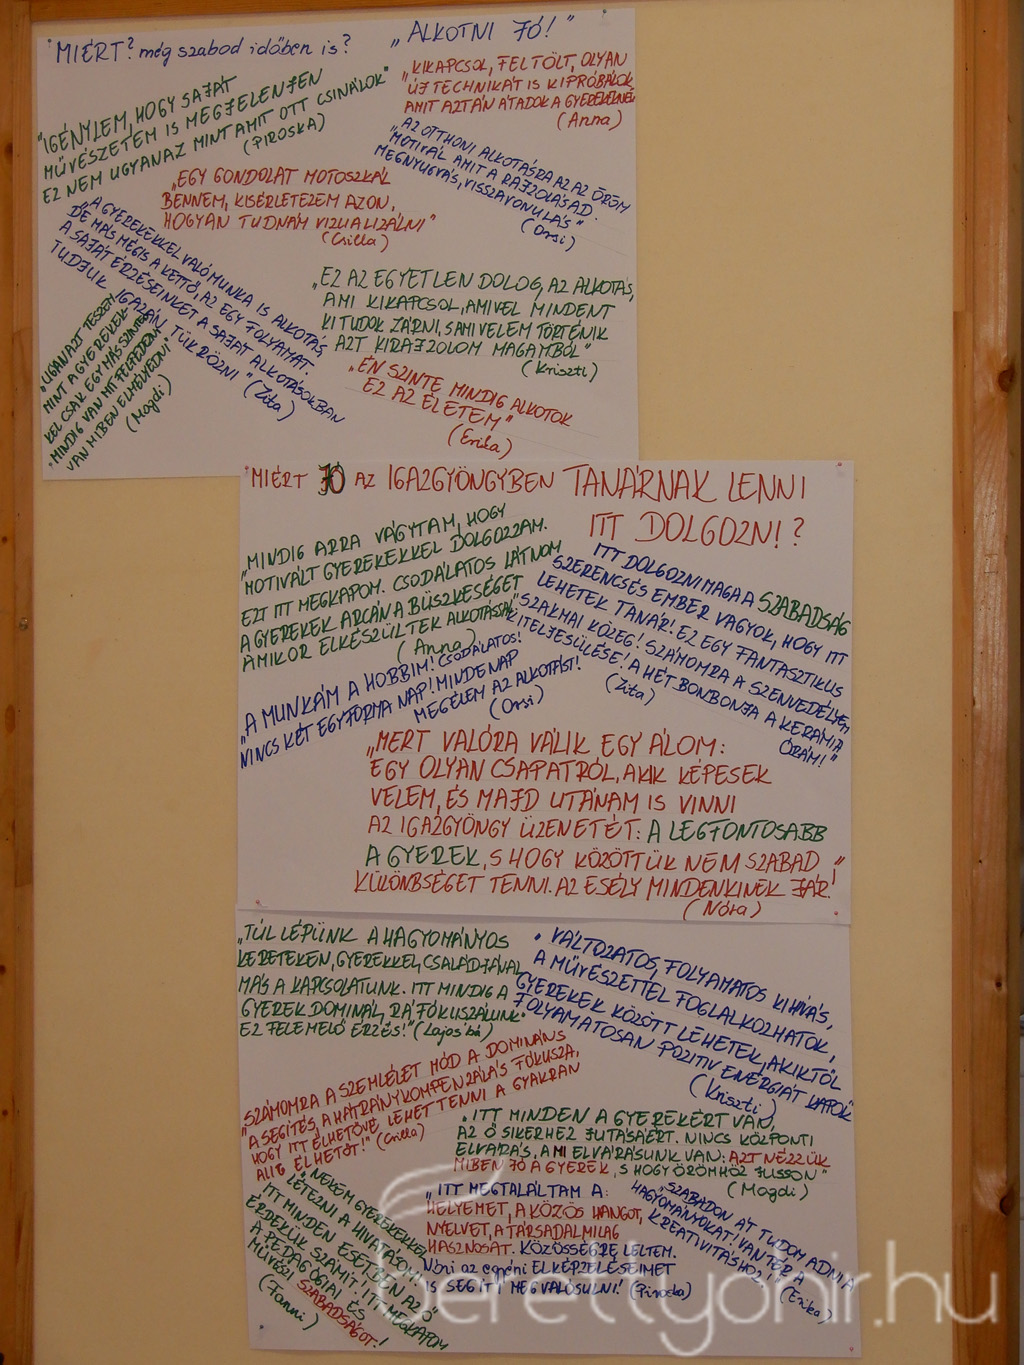 "MIÉRT? még szabad időben is?
„ALKOTNI JÓ!"
"IGÉNYLEM, HOGY SAJÁT
MŰVÉSZETEM IS MEGJELENJEN
EZ NEM UGYANAZ MINT AMIT OTT CSINÁLOK"
(PIROSKA)
„KIKAPCSOL, FELTÖLT, OLYAN
ÚJ TECHNIKÁT IS KIPRÓBÁLOK,
AMIT AZTÁN ÁTADOK A GYEREKEKNEK
(Anna)
"AZ OTTHONI ALKOTÁSRA AZ AZ ÖRÖM
MOTIVÁL AMIT A RAJZOLÁS AD.
MEGNYUGVÁS, VISSZAVONULÁS"
(Orsi)
„EGY GONDOLAT MOTOSZKÁL
BENNEM, KISÉRLETEZEM AZON,
HOGYAN TUDNÁM VIZUALIZÁLNI"
(Csilla)
„A GYEREKEKKEL VALÓ MUNKA IS ALKOTÁS,
DE MÁS MÉGIS A KETTŐ, AZ EGY FOLYAMAT.
A SAJÁT ÉRZÉSEINKET A SAJÁT ALKOTÁSOKBAN
TUDJUK IGAZÁN TÜKRÖZNI" (Zita)
„EZ AZ EGYETLEN DOLOG, AZ ALKOTÁS,
AMI KIKAPCSOL, AMIVEL MINDENT
KI TUDOK ZÁRNI, S AMI VELEM TÖRTÉNIK
AZT KIRAJZOLOM MAGAMBÓL"
(Kriszti)
„UGYANAZT TESZEM
MINT A GYEREKEK-
KEL CSAK EGY MÁS SZINTEN
„MINDIG VAN MIT FELFEDEZNI
VAN MIBEN ELMÉLYEDNI"
(Magdi)
„ÉN SZINTE MINDIG ALKOTOK
EZ AZ ÉLETEM"
(Erika)
"MIÉRT JÓ AZ IGAZGYÖNGYBEN TANÁRNAK LENNI
ITT DOLGOZNI?
„MINDIG ARRA VÁGYTAM, HOGY
MOTIVÁLT GYEREKEKKEL DOLGOZZAM.
EZT ITT MEGKAPOM. CSODÁLATOS LÁTNOM
A GYEREKEK ARCÁN A BÜSZKESÉGET
AMIKOR ELKÉSZÜLTEK ALKOTÁSSAL"
(Anna)
ITT DOLGOZNI MAGA A SZABADSÁG
SZERENCSÉS EMBER VAGYOK, HOGY ITT
LEHETEK TANÁR! EZ EGY FANTASZTIKUS
SZAKMAI KÖZEG! SZÁMOMRA A SZENVEDÉLYEM
KITELJESÜLÉSE! A HÉT BONBONJA A KERÁMIA
ÓRÁM!"
(Zita)
„A MUNKÁM A HOBBIM! CSODÁLATOS!
NINCS KÉT EGYFORMA NAP! MINDENAP
MEGÉLEM AZ ALKOTÁST!
(Orsi)
„MERT VALÓRA VÁLIK EGY ÁLOM:
EGY OLYAN CSAPATRÓL, AKIK KÉPESEK
VELEM, ÉS MAJD UTÁNAM IS VINNI
AZ IGAZGYÖNGY ÜZENETÉT: A LEGFONTOSABB
A GYEREK, S HOGY KÖZÖTTÜK NEM SZABAD
KÜLÖNBSÉGET TENNI. AZ ESÉLY MINDENKINEK JÁR!"
(Nóra)
„TÚL LÉPÜNK A HAGYOMÁNYOS
KERETEKEN, GYEREKKEL, CSALÁDJÁVAL
MÁS A KAPCSOLATUNK. ITT MINDIG A
GYEREK DOMINÁL, RÁ FÓKUSZÁLUNK.
EZ FELEMELŐ ÉRZÉS!" (Lajos bá)
„VÁLTOZATOS, FOLYAMATOS KIHÍVÁS,
A MŰVÉSZETTEL FOGLALKOZHATOK,
GYEREKEK KÖZÖTT LEHETEK, AKIKTŐL
FOLYAMATOSAN POZITIV ENERGIÁT KAPOK"
(Kriszti)
"SZÁMOMRA A SZEMLÉLET MÓD A DOMINÁNS
"A SEGÍTÉS, A HÁTRÁNYKOMPENZÁLÁS FÓKUSZA,
HOGY ITT ÉLHETŐVÉ LEHET TENNI A GYAKRAN
ALIG ÉLHETŐT!" (Csilla)
„ITT MINDEN A GYEREKÉRT VAN,
AZ Ő SIKERHEZ JUTÁSÁÉRT. NINCS KÖZPONTI
ELVÁRÁS, A MI ELVÁRÁSUNK VAN: AZT NÉZZÜK
MIBEN JÓ A GYEREK, S HOGY ÖRÖMHÖZ JUSSON"
(Magdi)
„NEKEM GYEREKEKKEL
LÉTEZNI A HIVATÁSOM!
ITT MINDEN ESETBEN AZ Ő
ÉRDEKÜK SZÁMÍT! ITT MEGKAPOM
A PEDAGÓGIAI ÉS
MŰVÉSZI SZABADSÁGOT!
(Fanni)
„ITT MEGTALÁLTAM A:
HELYEMET, A KÖZÖS HANGOT,
NYELVET, A TÁRSADALMILAG
HASZNOSÁT. KÖZÖSSÉGRE LELTEM.
Nóri az egyéni ELKÉPZELÉSEIMET
IS SEGÍTI MEGVALÓSULNI! (Piroska)
„SZABADON ÁT TUDOM ADNI A
HAGYOMÁNYOKAT! VAN TÉR A
KREATIVITÁSHOZ!"
(Erika)
berettyohir.hu